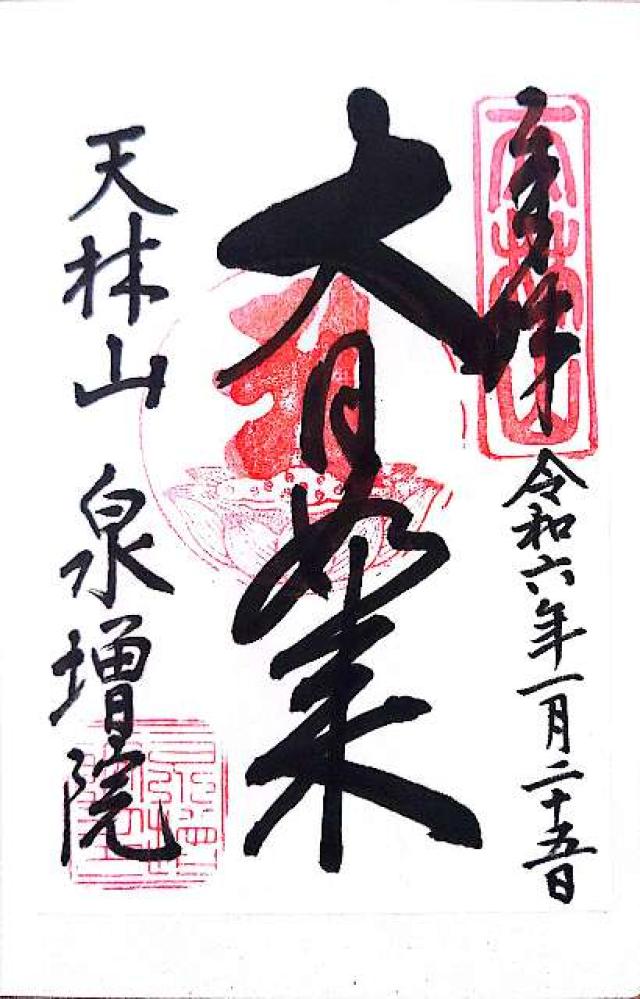 奉拝
令和六年一月二十五日
大日如来
天林山 泉増院